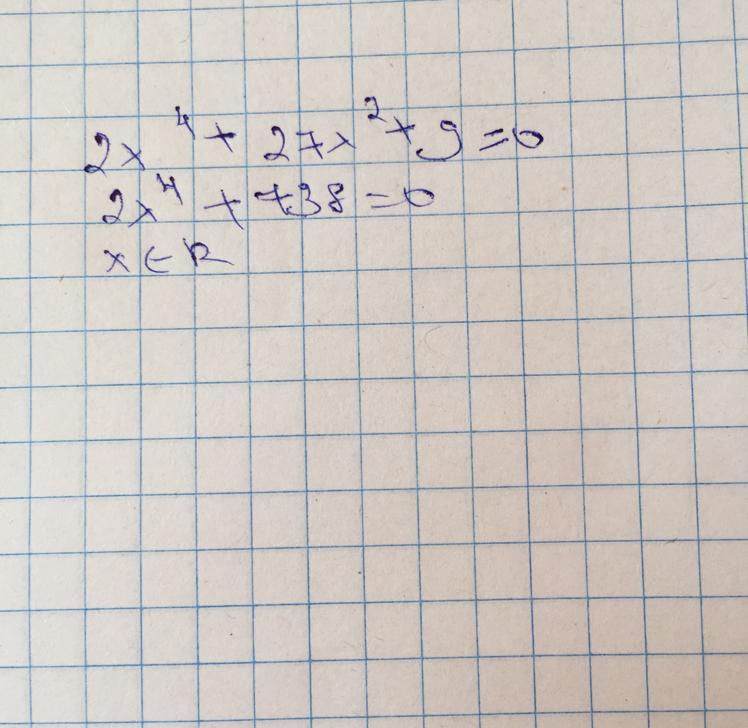 2x⁴ + 27x² + 9 = 0
2x⁴ + 738 = 0
x ∈ R